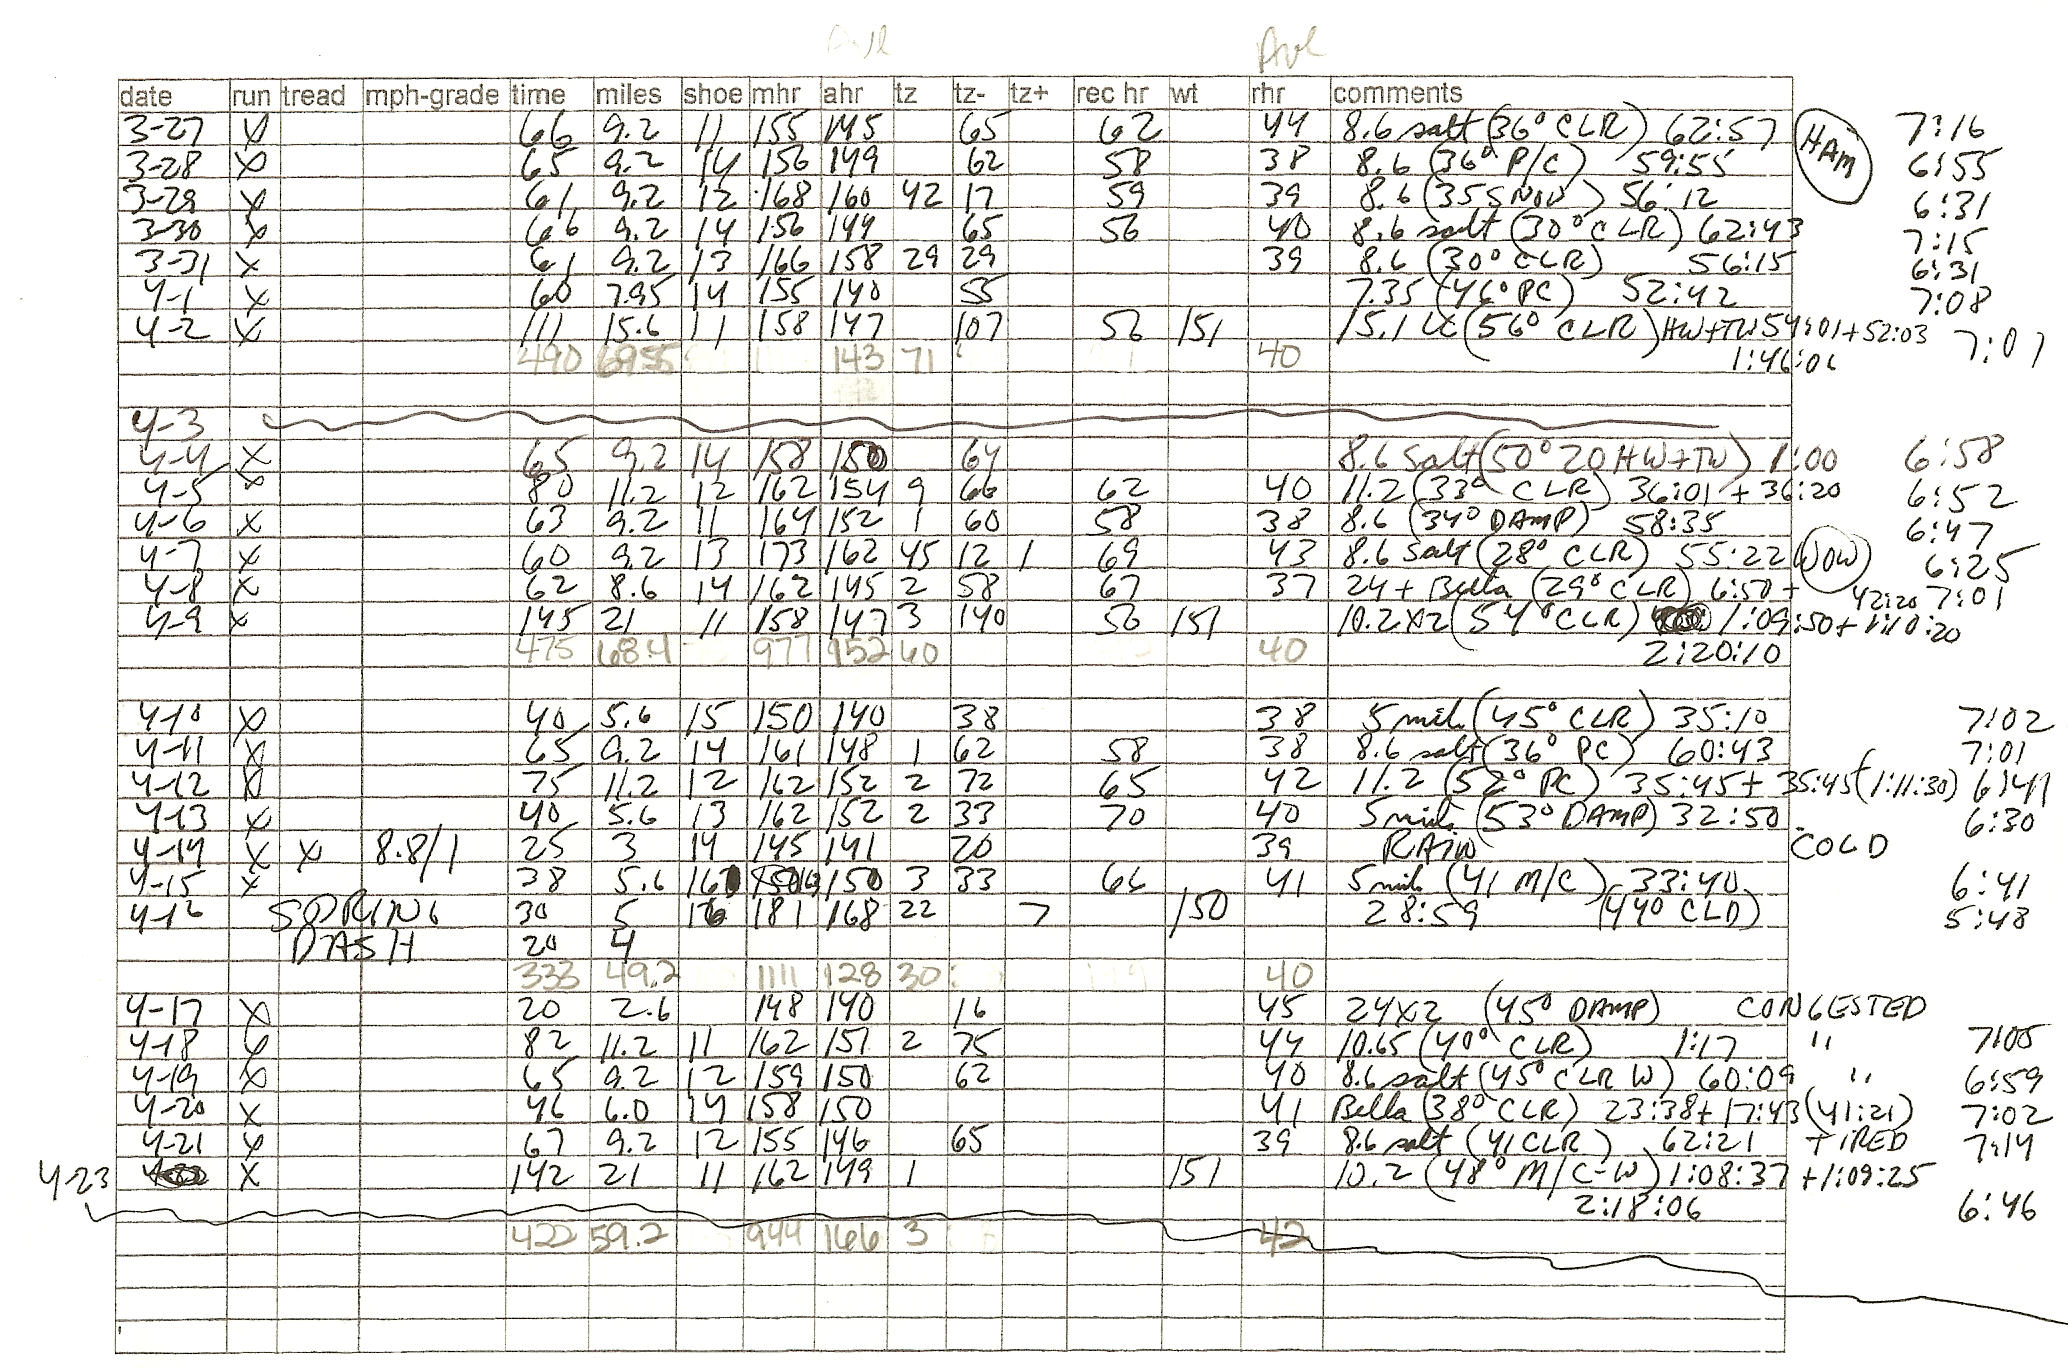 Ave Ave
date run tread mph-grade time miles shoe mhr ahr tz tz- tz+ rec hr wt rhr comments
3-27 X 66 9.2 11 155 145 65 62 44 8.6 salt (36° CLR) 62:57 HAM 7:16
3-28 X 65 9.2 14 156 149 62 58 38 8.6 (36° P/C) 59:55 6:55
3-29 X 61 9.2 12 168 160 42 17 59 39 8.6 (35 SNOW) 56:12 6:31
3-30 X 66 9.2 14 156 149 65 56 40 8.6 salt (30° CLR) 62:43 7:15
3-31 X 61 9.2 13 166 158 29 29 39 8.6 (30° CLR) 56:15 6:31
4-1 X 60 7.95 14 155 140 55 7.35 (46° PC) 52:42 7:08
4-2 X 111 15.6 11 158 147 107 56 151 15.1 LC (56° CLR) HW+TW 54:01+52:03 7:01
490 69.55 143 71 40 1:46:06
4-3
4-4 X 65 9.2 14 158 150 64 8.6 salt (50° 20 HW+TW) 1:00 6:58
4-5 X 80 11.2 12 162 154 9 66 62 40 11.2 (33° CLR) 36:01 + 36:20 6:52
4-6 X 63 9.2 11 164 152 1 60 58 38 8.6 (34° DAMP) 58:35 6:47
4-7 X 60 9.2 13 173 162 45 12 1 69 43 8.6 salt (28° CLR) 55:22 WOW 6:25
4-8 X 62 8.6 14 162 145 2 58 67 37 24 + Bella (29° CLR) 6:50 + 42:20 7:01
4-9 X 145 21 11 158 147 3 140 56 151 10.2X2 (54° CLR) 1:09:50+1:10:20
475 68.4 977 152 60 40 2:20:10
4-10 X 40 5.6 15 150 140 38 38 5 mile (45° CLR) 35:10 7:02
4-11 X 65 9.2 14 161 148 1 62 58 38 8.6 salt (36° PC) 60:43 7:01
4-12 X 75 11.2 12 162 152 2 72 65 42 11.2 (52° PC) 35:45 + 35:45 (1:11:30) 6:41
4-13 X 40 5.6 13 162 152 2 33 70 40 5 mile (53° DAMP) 32:50 6:30
4-14 X X 8.8/1 25 3 14 145 141 20 39 RAIN COLD
4-15 X 38 5.6 16 150 3 33 66 41 5 mile (41 M/C) 33:40 6:41
4-16 SPRING 30 5 16 181 168 22 7 150 28:59 (44° CLD) 5:48
DASH 20 4
333 49.2 1111 128 30 40
4-17 X 20 2.6 148 140 16 45 24X2 (45° DAMP) CONGESTED
4-18 X 82 11.2 11 162 151 2 75 44 10.65 (40° CLR) 1:17 " 7:05
4-19 X 65 9.2 12 159 150 62 40 8.6 salt (45° CLR W) 60:09 " 6:59
4-20 X 46 6.0 14 158 150 41 Bella (38° CLR) 23:38+17:43 (41:21) 7:02
4-21 X 67 9.2 12 155 146 65 39 8.6 salt (41 CLR) 62:21 TIRED 7:14
4-23 X 142 21 11 162 149 1 151 10.2 (48° M/C-W) 1:08:37 +1:09:25
2:18:06 6:46
422 59.2 944 166 3 42